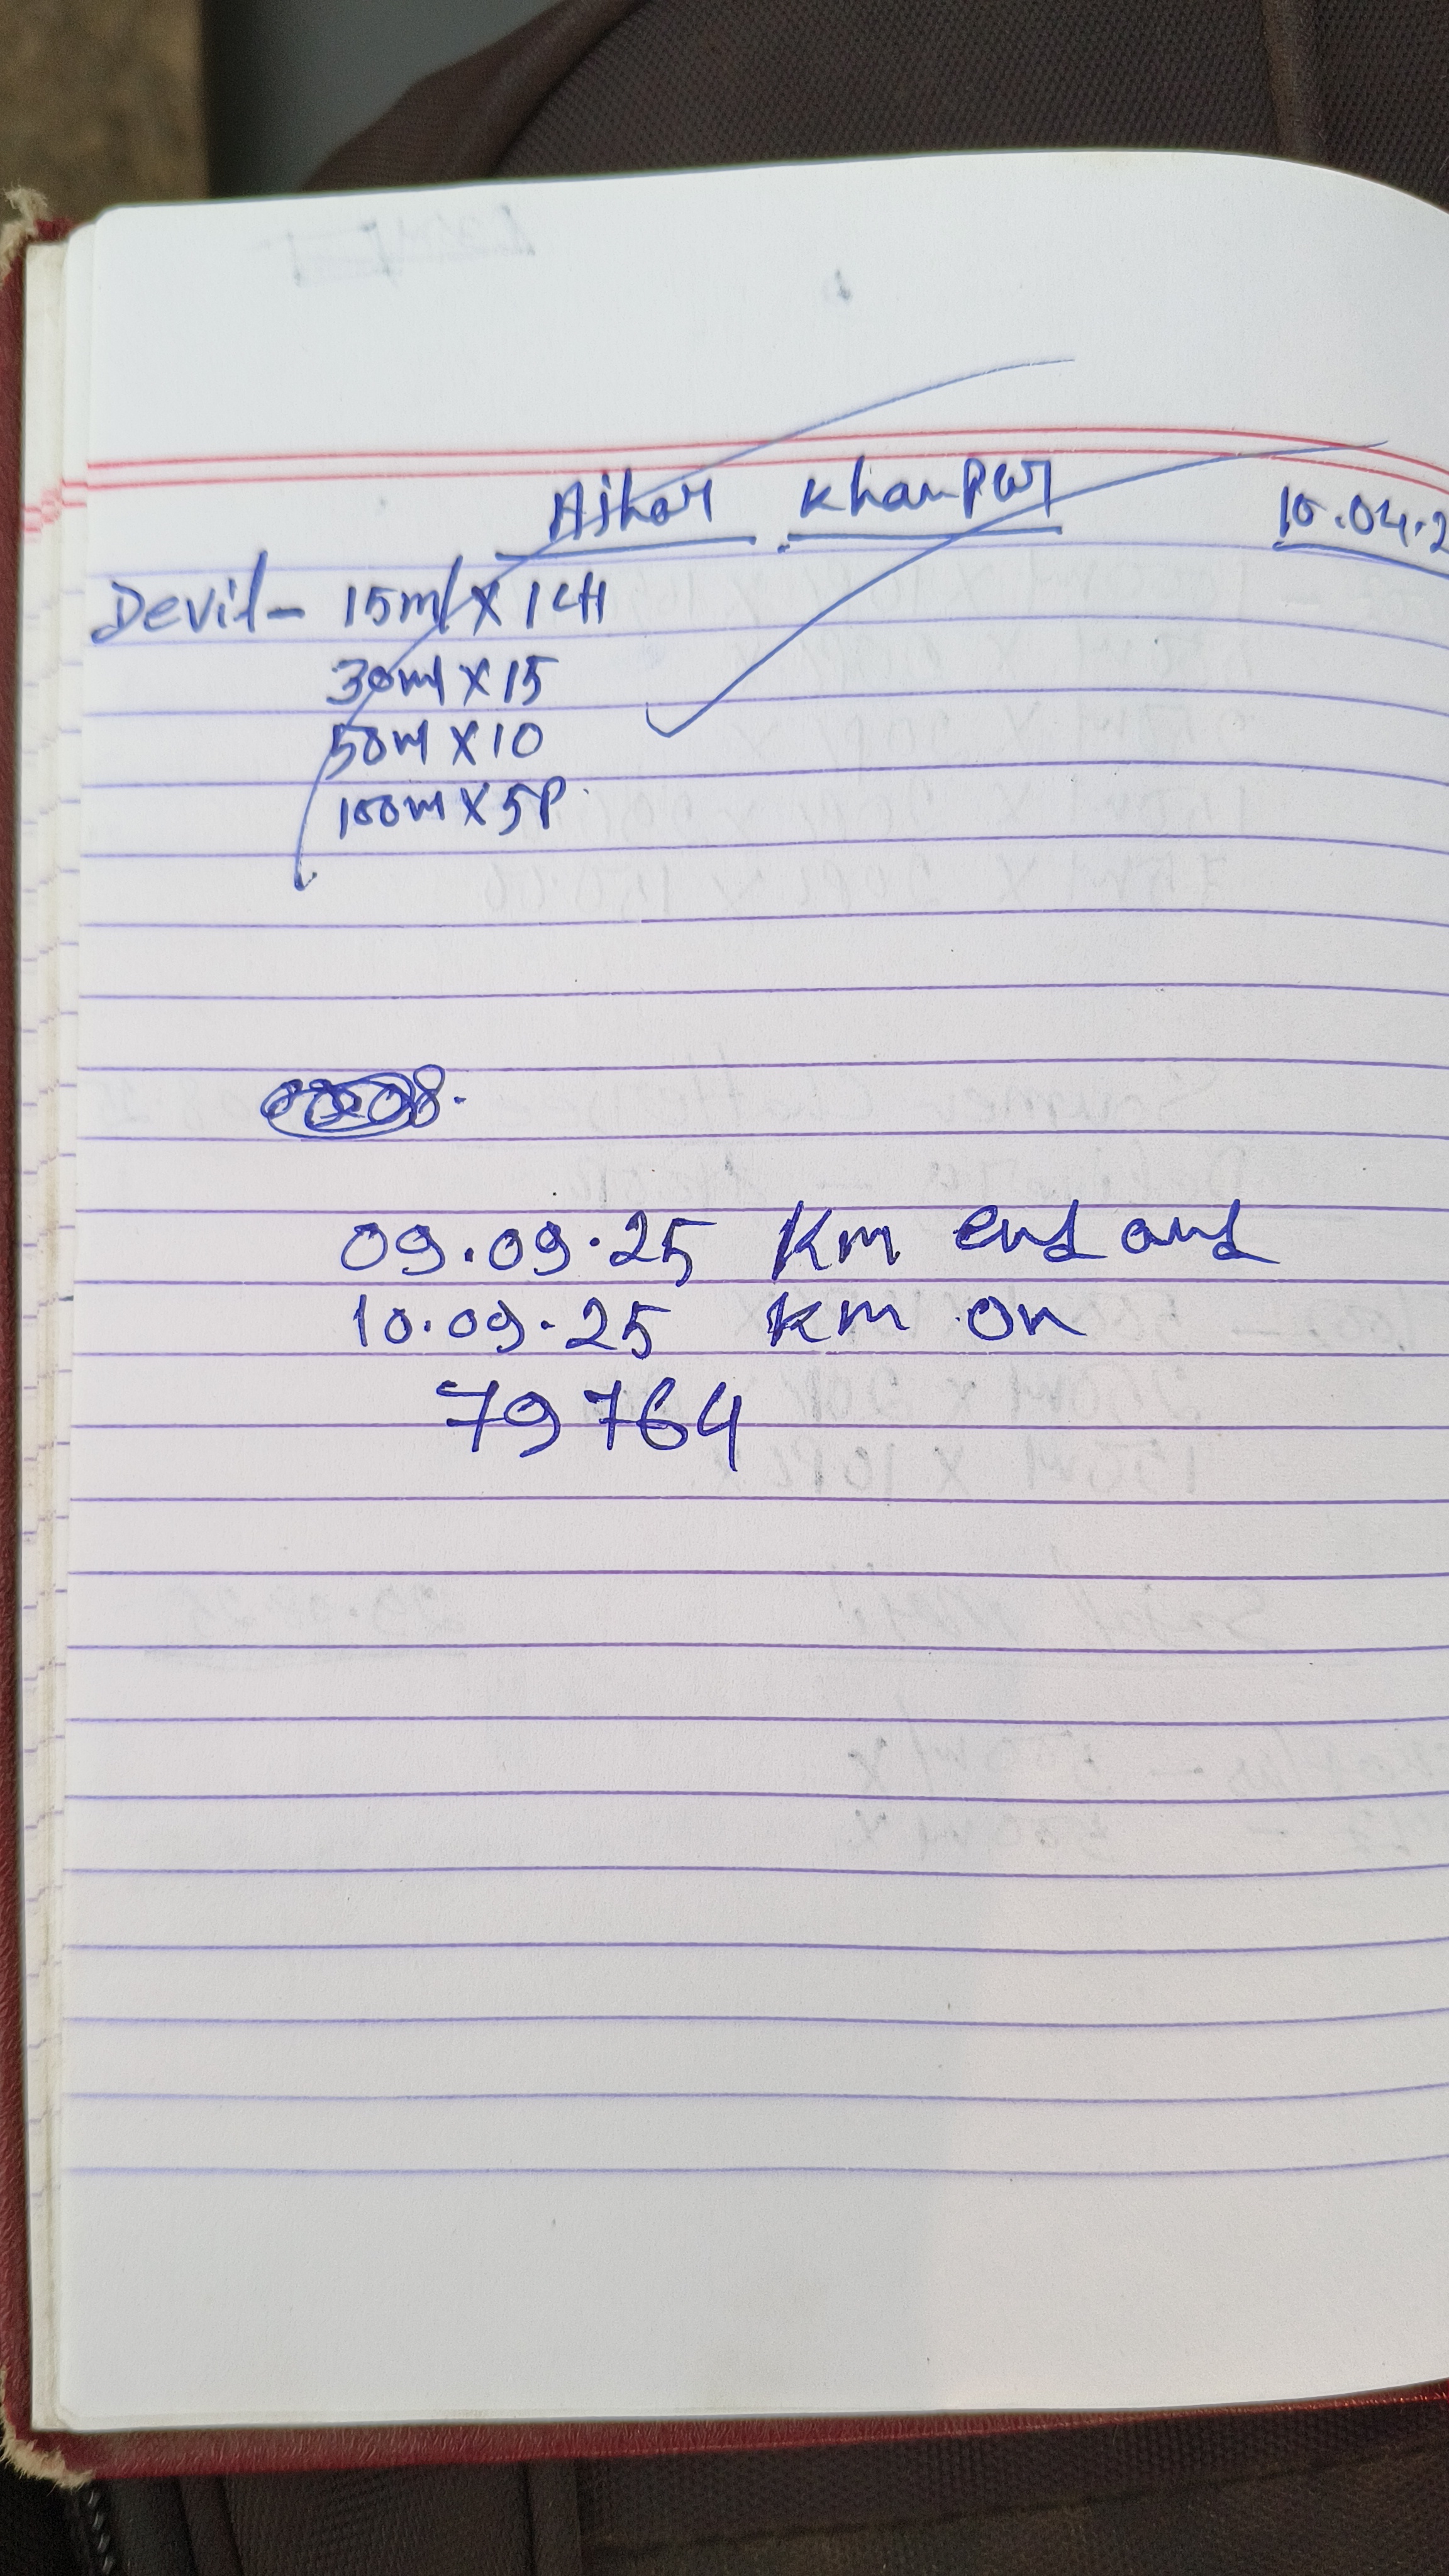 Khanpur 10.04.2
Devil - 15ml X
30ml X 15
50ml X 10
100ml X 5P
09.09.25 Km end and
10.09.25 Km on
79764